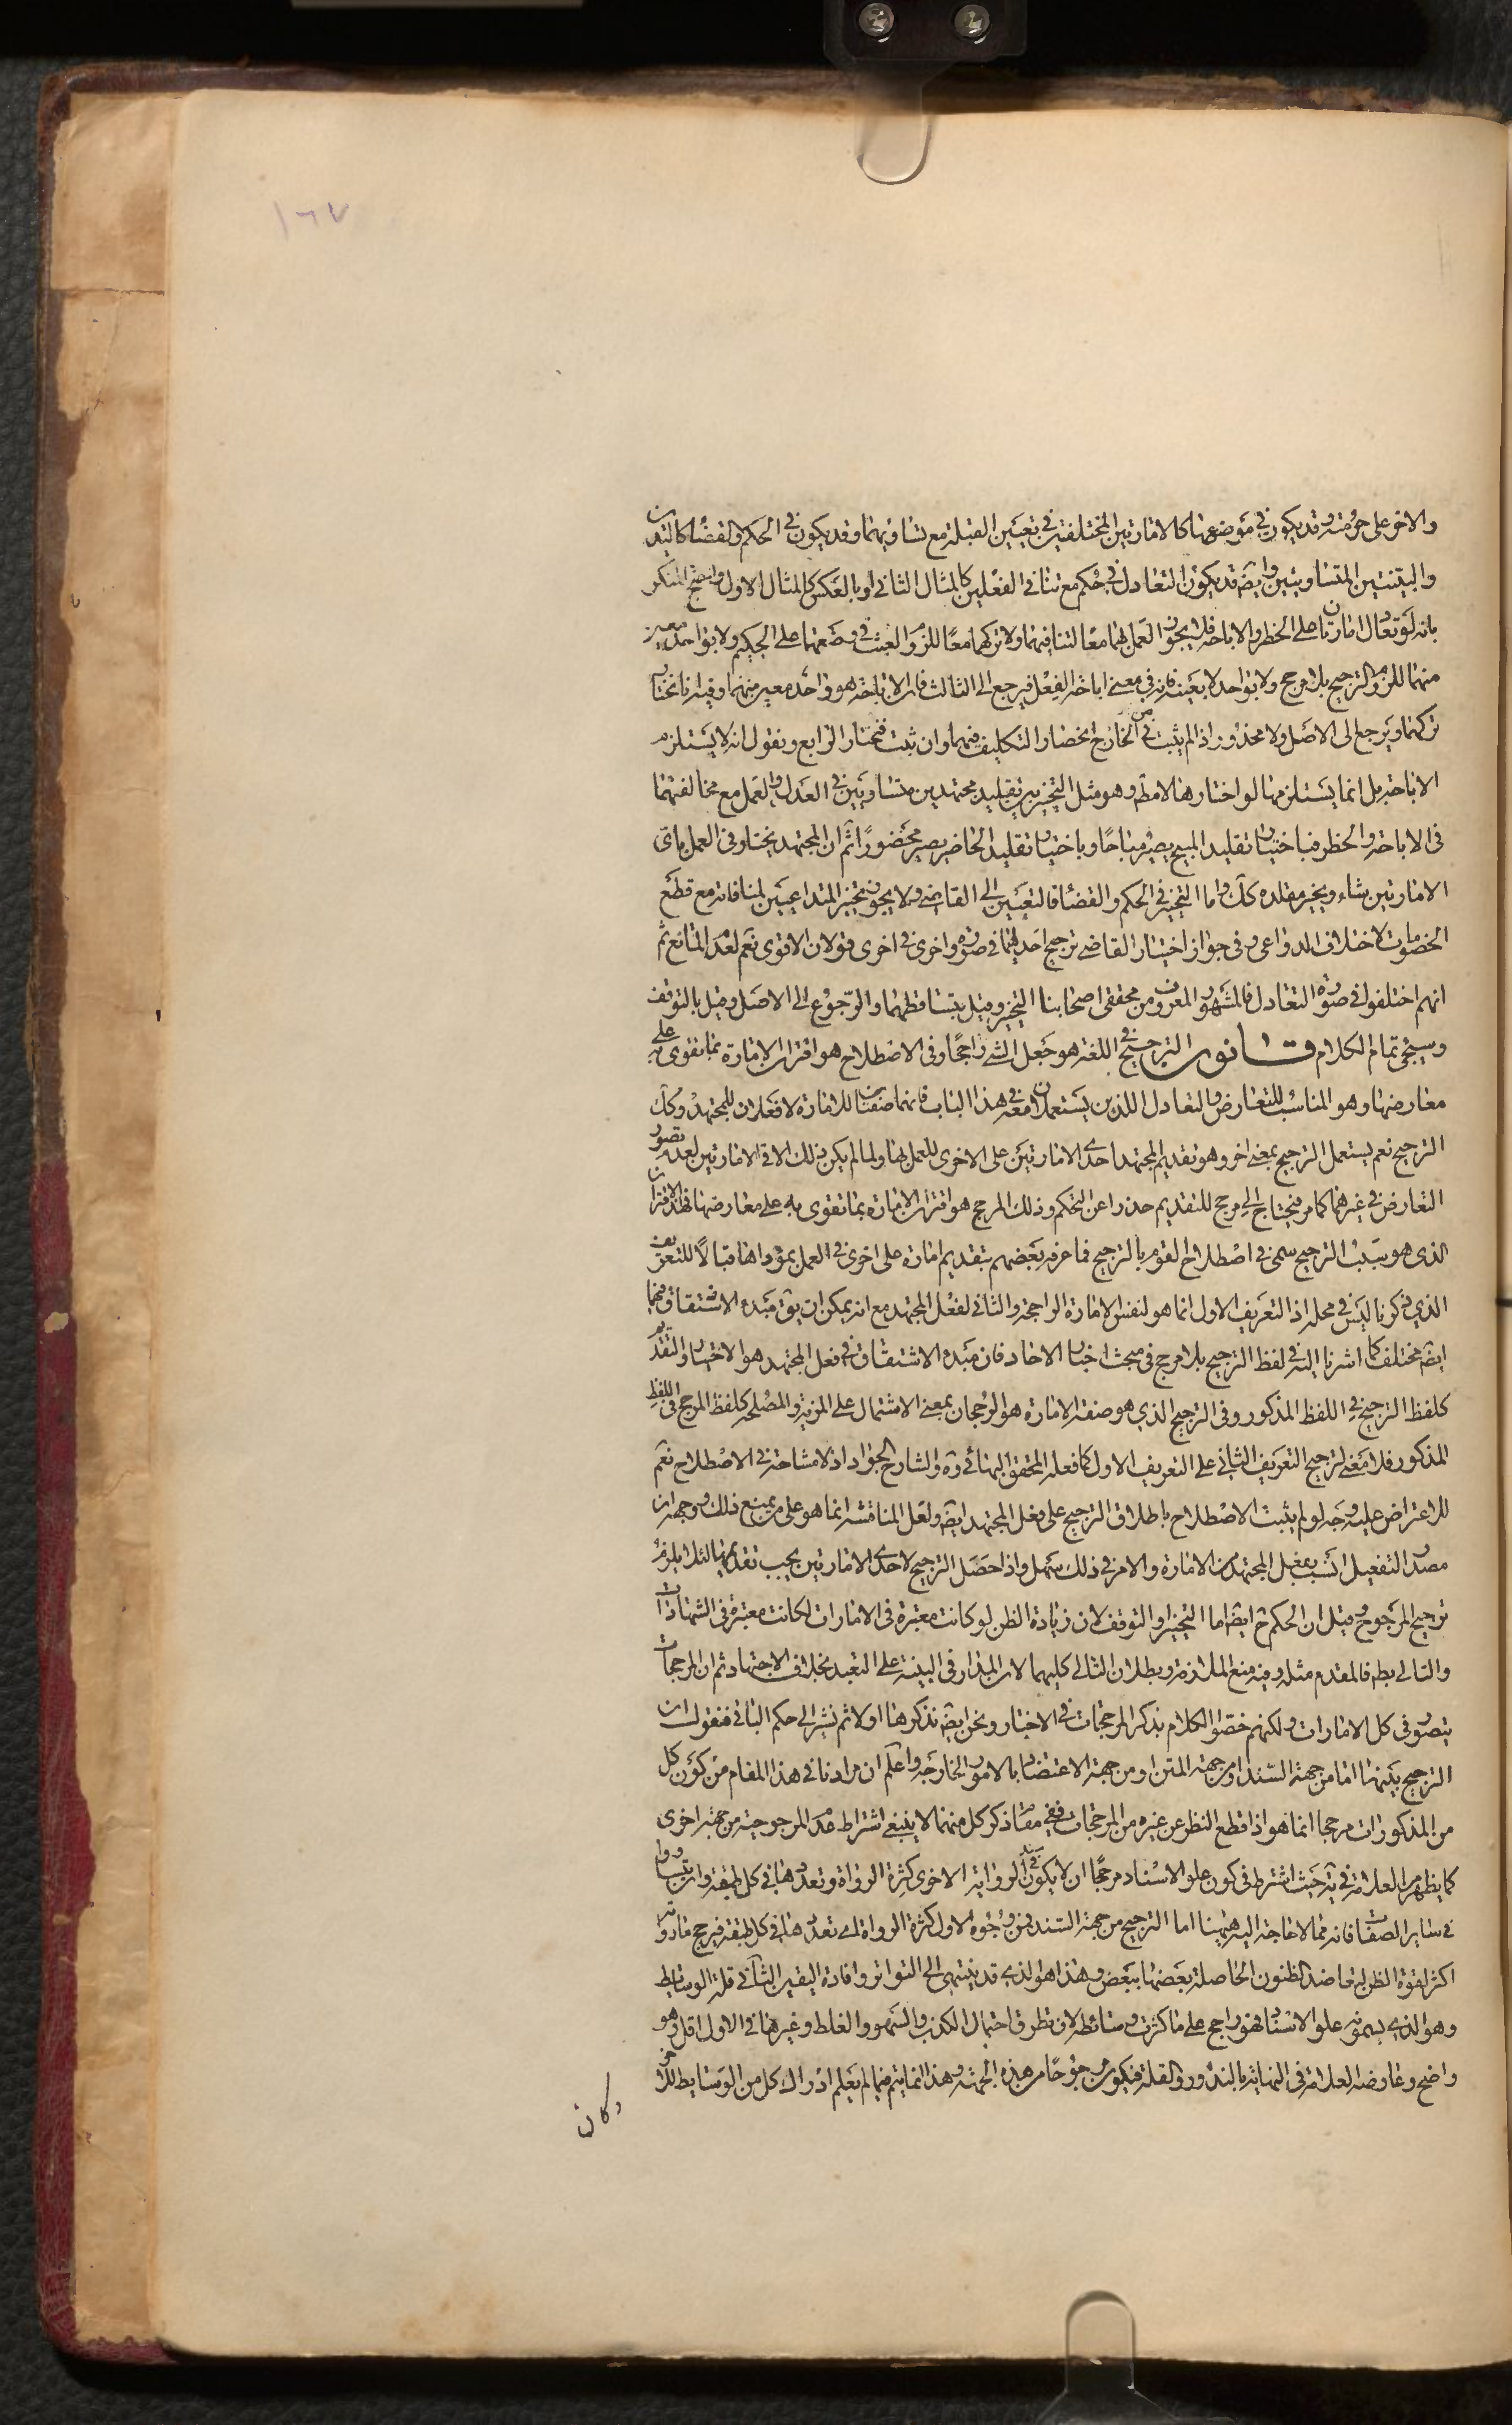 ١٦٧
والاخر على حرمته وقد يكون في موضوعها كالامارتين المختلفتين في تعيين القبلة مع تساويهما وقد يكون في الحكم والقضا كاليدين
والبينتين المتساويتين وايضا قد يكون التعادل في حكم مع تنافي الفعلين كالمثال الثاني او بالعكس كالمثال الاول واحتج المنكر
بانه لو تعادل امارتان على الحظر والاباحة فلا يجوز العمل بهما معا لتنافيهما ولا تركهما معا للزوم العبث في وضعهما على الحكيم ولا بواحد معين
منهما للزوم الترجيح بلا مرجح ولا بواحد لا بعينه فانه في معنى اباحة الفعل فيرجع الى الثالث فان الاباحة هو واحد معين منهما وفيه انا نختار
تركهما ويرجع الى الاصل ولا محذور اذا لم يثبت من الخارج انحصار التكليف فيهما وان ثبت فنختار الرابع ونقول انه لا يستلزم
الاباحة بل انما يستلزمها لو اختارها لا مط وهو مثل التخيير بين تقليد مجتهدين متساويين في العدل والعمل مع مخالفتهما
في الاباحة والحظر فباختيار تقليد المبيح يصير مباحا وباختيار تقليد الحاضر يصير محضورا ثم ان المجتهد يختار في العمل باي
الامارتين شاء ويخير مقلده كك واما التخيير في الحكم والقضا فالتعيين الى القاضي ولا يجوز تخيير المتداعيين لمنافاته مع قطع
الخصومات لاختلاف الدواعي وفي جواز اختيار القاضي ترجيح احديهما في صورة واخرى في اخرى قولان الاقوى نعم لعدم المانع ثم
انهم اختلفوا في صورة التعادل فالمشهور المعروف من محققي اصحابنا التخيير وقيل بتساقطهما والرجوع الى الاصل وقيل بالتوقف
وسيجيء تمام الكلام قانون الترجيح في اللغة هو جعل الشي راجحا وفي الاصطلاح هو اقتران الامارة بما تقوى به على
معارضها وهو المناسب للتعارض والتعادل اللذين يستعملان معه في هذا الباب فانهما صفتان للامارة لا فعلان للمجتهد وكك
الترجيح نعم يستعمل الترجيح بمعنى اخر وهو تقديم المجتهد احدى الامارتين على الاخرى للعمل بها ولما لم يكن ذلك الا في الامارتين لعدم تصور
التعارض في غيرهما كما مر فيحتاج الى مرجح للتقديم حذرا عن التحكم وذلك المرجح هو اقتران الامارة بما تقوى به على معارضها فهذا الاقتران
الذي هو سبب الترجيح سمى في اصطلاح القوم بالترجيح فما عرفه بعضهم بتقديم امارة على اخرى في العمل بمؤداها قبالا للتعريف
الذي ذكرنا ليس في محله اذ التعريف الاول انما هو لنفس الامارة الراجحة والثاني لفعل المجتهد مع انه يمكن ان يق مبدء الاشتقاق فيهما
ايضا مختلف كما اشرنا اليه في لفظ الترجيح بلا مرجح في مبحث اخبار الاحاد فان مبدء الاشتقاق في فعل المجتهد هو الاختيار والتقديم
كلفظ الترجيح في اللفظ المذكور وفي الترجيح الذي هو صفة الامارة هو الرجحان بمعنى الاشتمال على المزية والمصلحة كلفظ المرجح في اللفظ
المذكور فلا معنى لترجيح التعريف الثاني على التعريف الاول كما فعله المحقق البهائي ره والشارح الجواد اذ لا مشاحة في الاصطلاح نعم
للاعتراض عليه وجه لو لم يثبت الاصطلاح باطلاق الترجيح على فعل المجتهد ايضا ولعل المناقشة انما هو على من يمنع ذلك ووجهه ان
مصدر التفعيل انسب بفعل المجتهد من الامارة والامر في ذلك سهل واذا حصل الترجيح لاحدى الامارتين يجب تقديمها لئلا يلزم
ترجيح المرجوح وقيل ان الحكم ح ايضا اما التخيير او التوقف لان زيادة الظن لو كانت معتبرة في الامارات لكانت معتبرة في الشهادات
والتالي بط فالمقدم مثله وفيه منع الملازمة وبطلان التالي كليهما لان المدار في البينة على التعبد بخلاف الاجتهاد ثم ان المرجحات
يتصور في كل الامارات ولكنهم خصوا الكلام بذكر المرجحات في الاخبار ونحن ايضا نذكرها اولا ثم نشير الى حكم الباقي فنقول ان
الترجيح بينها اما من جهة السند او من جهة المتن او من جهة الاعتضاد بالامور الخارجة واعلم ان مرادنا في هذا المقام من كون كل
من المذكورات مرجحا انما هو اذا قطع النظر عن غيره من المرجحات ففي مقام ذكر كل منهما لا ينبغي اشتراط عدم المرجوحية من جهة اخرى
كما يظهر من العلامة في يه حيث اشترط في كون علو الاسناد مرجحا ان لا يكون في الرواية الاخرى كثرة الرواة وتعددها في كل طبقة وان يتساووا
في ساير الصفات فانه مما لا حاجة اليه هيهنا اما الترجيح من جهة السند فمن وجوه الاول كثرة الرواة اي تعددها في كل طبقة فيرجح ما رواته
اكثر لقوة الظن لتعاضد الظنون الحاصلة بعضها ببعض وهذا هو الذي قد ينتهي الى التواتر وافادة اليقين الثاني قلة الوسائط
وهو الذي يسمونه علو الاسناد فهو راجح على ما كثرت وسائطه لان تطرق احتمال الكذب والسهو والغلط وغيرها في الاول اقل وهو
واضح وعارضه العلامة في النهاية بالندور والقلة فيكون مرجوحا من هذه الجهة وهذا انما يتم فيما لم يعلم ادراك كل من الوسايط للاخر
وكان